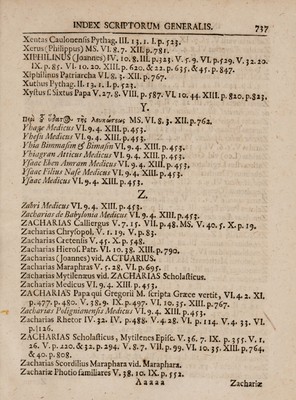 INDEX SCRIPTORUM GENERALIS. 737
Xentas Cauloniensis Pythag. III. 13. 1. I. p. 523.
Xerus (Philippus) MS. VI. 8. 7. XII. p. 781.
XIPHILINUS (Joannes) IV. 10. 8. III. p. 323. V. 5. 9. VI. p. 529. V. 32. 20.
IX. p. 85. VI. 10. 20. XIII. p. 620. & 22. p. 635. & 45. p. 847.
Xiphilinus Patriarcha VI. 8. 3. XII. p. 767.
Xuthus Pythag. II. 13. 1. I. p. 523.
Xystus f. Sixtus Papa V. 27. 8. VIII. p. 587. VI. 10. 44. XIII. p. 820. p. 823.
Y.
ὕδατ λευκώσεως MS. VI. 8. 3. XII. p. 762.
Ybaqe Medicus VI. 9. 4. XIII. p. 453.
Ybesis Medicus VI. 9. 4. XIII. p. 453.
Ybia Binmasin & Bimasin VI. 9. 4. XIII. p. 453.
Ybiagram Atticus Medicus VI. 9. 4. XIII. p. 453.
Ysaac Eben Amram Medicus VI. 9. 4. XIII. p. 453.
Ysaac Filius Nase Medicus VI. 9. 4. XIII. p. 453.
Ysaac Medicus VI. 9. 4. XIII. p. 453.
Z.
Zabri Medicus VI. 9. 4. XIII. p. 453.
Zacharias de Babylonia Medicus VI. 9. 4. XIII. p. 453.
ZACHARIAS Calliergus V. 7. 15. VII. p. 48. MS. V. 40. 5. X. p. 19.
Zacharias Chrysopol. V. 1. 19. V. p. 83.
Zacharias Certensis V. 45. X. p. 548.
Zacharias Hierof. Patr. VI. 10. 38. XIII. p. 790.
Zacharias (Joannes) vid. ACTUARIUS.
Zacharias Maraphras V. 5. 28. VI. p. 695.
Zacharias Mytilenæus vid. ZACHARIAS Scholasticus.
Zacharias Medicus VI. 9. 4. XIII. p. 453.
ZACHARIAS Papa qui Gregorii M. scripta Græce vertit, VI. 4. 2. XI.
p. 477. p. 480. V. 38. 9. IX. p. 497. VI. 10. 35. XIII. p. 767.
Zacharias Polignanensis Medicus VI. 9. 4. XIII. p. 453.
Zacharias Rhetor IV. 32. IV. p. 488. V. 4. 28. VI. p. 114. V. 4. 33. VI.
p. 126.
ZACHARIAS Scholasticus, Mytilenes Episc. V. 36. 7. IX. p. 355. V. 1.
26. V. p. 220. & 32. p. 294. V. 8. 7. VII. p. 99. VI. 10. 35. XIII. p. 764.
& 40. p. 808.
Zacharias Scordilius Maraphara vid. Maraphara.
Zachariæ Photio familiares V. 38. 10. IX. p. 552.
Aaaaa Zachariæ